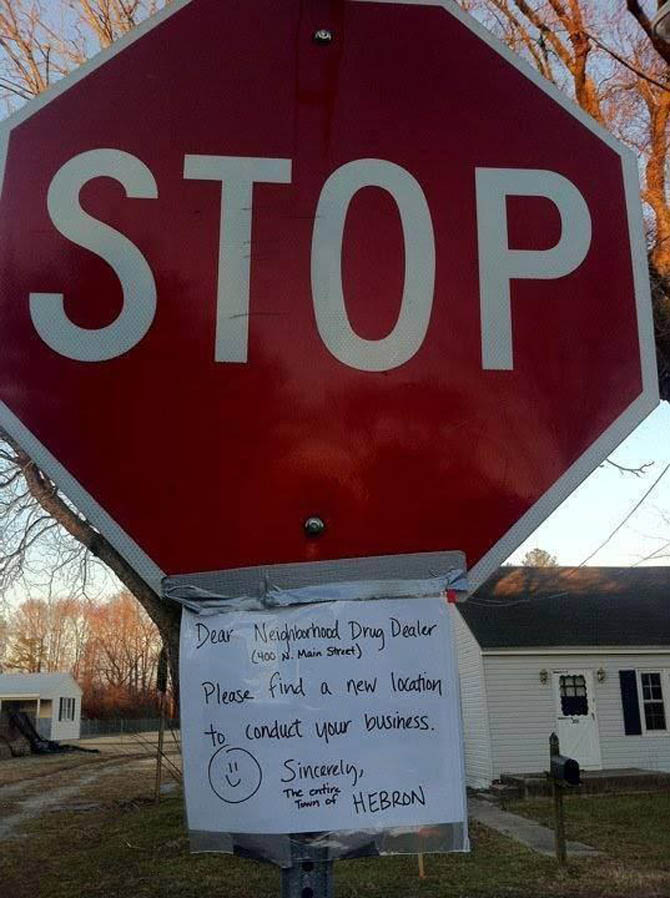 STOP
Dear Neighborhood Drug Dealer
(400 N. Main Street)
Please find a new location
to conduct your business.
Sincerely,
The entire
Town of HEBRON